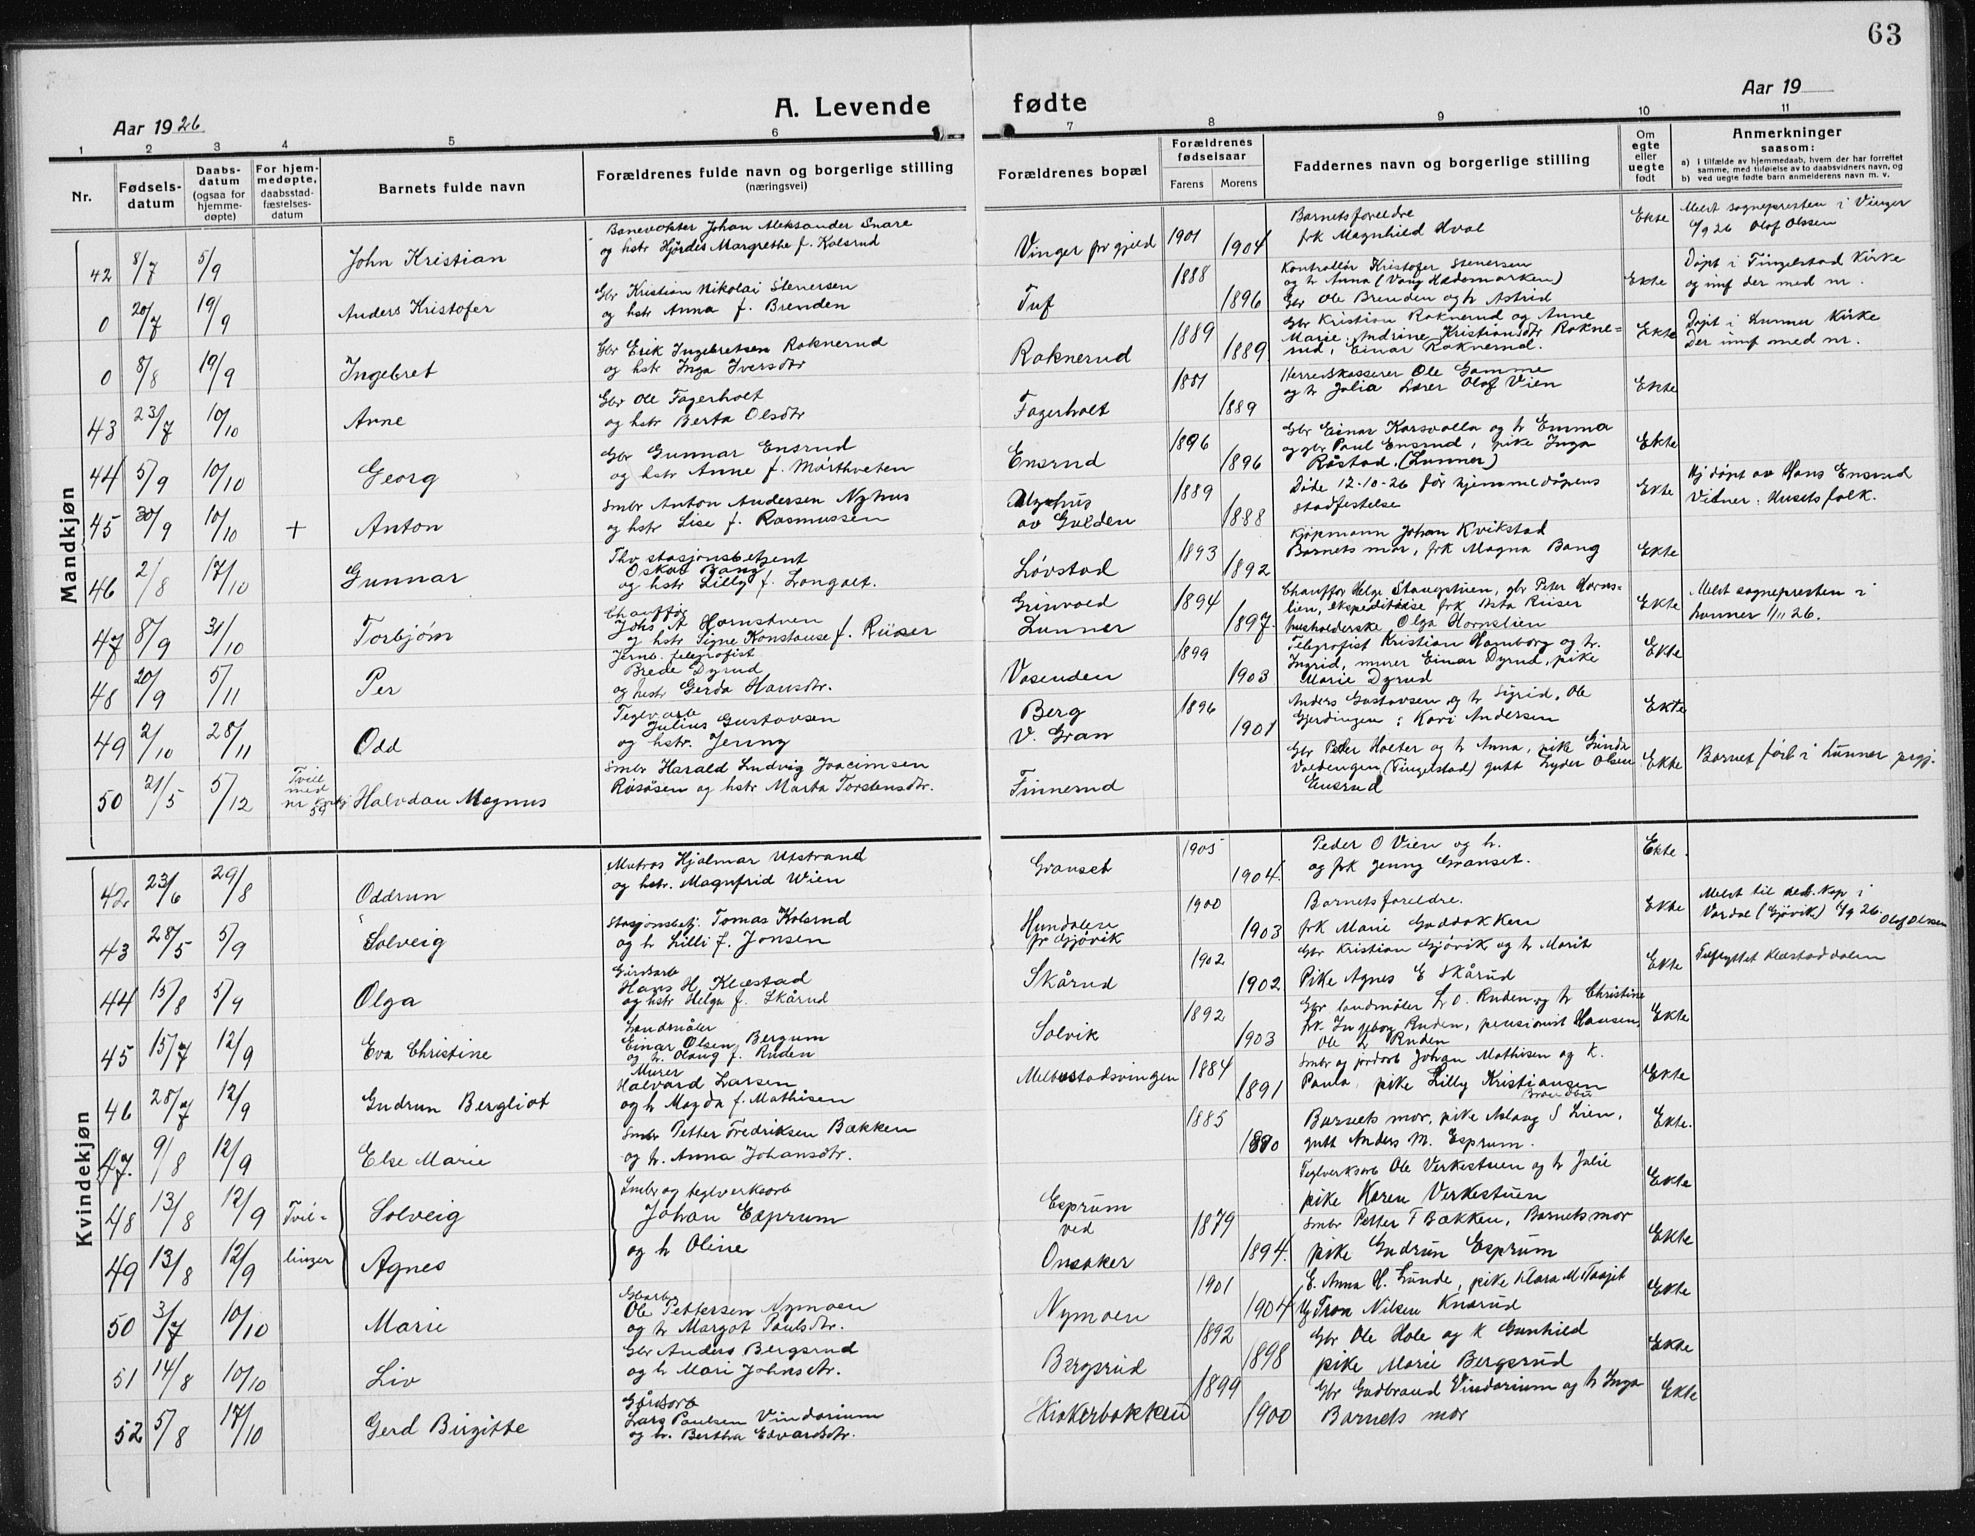 63
Aar 1926
A. Levende fødte
Aar 19
1 2 3 4 5 6 7 8 9 10 11
Nr.
Fødsels-
datum
Daabs-
datum
(ogsaa for
hjemme-
døpte)
For hjem-
medøpte,
daabsstad-
fæstelses-
datum
Barnets fulde navn
Forældrenes fulde navn og borgerlige stilling
(næringsvei)
Forældrenes bopæl
Forældrenes
fødselsaar
Farens Morens
Faddernes navn og borgerlige stilling
Om
egte
eller
uegte
født
Anmerkninger
saasom:
a) I tilfælde av hjemmedaab, hvem der har forrettet
samme, med tilføielse av to daabsvidners navn, og
b) ved uegte fødte barn anmelderens navn m. v.
Mandkjøn
42 8/7 5/9 John Kristian
Banevokter Johan Aleksander Snare
og hstr Hjørdis Margrethe f. Kolsrud
Vinger pr gjeld 1901 1904
Barnets foreldre
frk Magnhild Hval
Ekte
Meldt sognepresten i Vinger
6/9 26 Olof Olssen
0 20/7 19/9 Anders Kristofer
Gbr Kristian Nikolai Stenersen
og hstr Anna f. Brenden
Tuf 1888 1896
Kontrollør Kristofer Stenersen
og h Anna (Vang Hedemarken)
Gbr Ole Brenden og h Astrid
Ekte
Døpt i Tingelstad Kirke
og innf der med nr.
0 8/8 19/9 Ingebret
Gbr Erik Ingebretsen Roknerud
og hstr Inga Iversdtr
Roknerud 1889 1889
Gbr Kristian Roknerud og Anne
Marie, Andrine Kristiansdtr Rokne=
rud, Einar Roknerud.
Ekte
Døpt i Lunner Kirke
Der innf med nr.
43 23/7 10/10 Anne
Gbr Ole Fagerholt
og hstr Berta Olsdtr
Fagerholt 1881 1889
Herredskasserer Ole Gamme
og h Julia Lærer Olof Vien
Ekte
44 5/9 10/10 Georg
Gbr Gunnar Ensrud
og hstr Anne f. Mørthveten
Ensrud 1896 1896
Gbr Einar Korsvolla og h Emma
og gbr Paul Ensrud, pike Inga
Røstad. (Lunner)
Ekte
45 30/9 10/10 + Anton
Smbr Anton Andersen Nyhus
og hstr Lise f. Rasmussen
Nyhus
av Gulden 1889 1888
Døde 12-10-26 før hjemmedåpens
stadfestelse
Ekte
Hj døpt av Hans Ensrud
Vitner: Husets folk.
46 2/8 17/10 Gunnar
Thv stasjonsbetjent
Oskar Bang
og hstr Lilly f. Longoet.
Løvstad 1893 1892
Kjøpmann Johan Kvikstad
Barnets mor, frk Magna Bang
Ekte
47 8/9 31/10 Torbjørn
Chauffør
Johs. A Hornstuen
og hstr Signe Konstanse f. Riiser
Grinvold
Lunner 1894 1897.
Chauffør Helge Stangstuen, gbr Peter Horns-
lien, ekspeditrise frk Asta Riiser
husholderske Olga Hornslien
Ekte
Meldt sognepresten i
Lunner 1/11 26.
48 20/9 5/11 Per
Jernb. telegrafist
Brede Dyrud
og hstr Gerda Hansdtr.
Vasenden 1899 1903
Telegrafist Kristian Hamborg og h.
Ingrid, murer Einar Dyrud, pike
Marie Dyrud
Ekte
49 2/10 28/11 Odd
Teglv.arb
Julius Gustavsen
og hstr. Jenny
Berg
V. Gran 1896 1901
Anders Gustavsen og h Sigrid, Ole
Gjerdingen : Kari Andersen
Ekte
50 21/5 5/12
Tvill
med
nr
59
Halvdan Magnus
Smbr Harald Ludvig Joacimsen
Røsåsen og hstr Marta Torstensdtr.
Finnerud
Gbr Peder Holter og h Anna, pike Gunda
Veldengen (Tingelstad) gutt Lyder Olsen
Ensrud
Ekte
Barnet født i Lunner prgj.
Kvindekjøn
42 23/6 29/8 Oddrun
Matros Hjalmar Utstrand
og hstr. Magnfrid Wien
Granset 1905 1904.
Peder O Vien og h.
og frk Jenny Granset.
Ekte.
43 28/5 5/9 Solveig
Stasjonsbetj. Tomas Kolsrud
og h Lilli f. Jonsen
Hundalen
pr Gjøvik 1900 1903
Barnets foreldre.
frk Marie Gaddokken
Ekte
Meldt til res. kap i
Vardal (Gjøvik) 6/9 26
Olof Olssen
44 15/8 5/9 Olga
Gårdsarb
Hans H Klæstad
og hstr Helga f. Skårud
Skårud 1902 1902
Gbr Kristian Gjøvik og h Marit
Pike Agnes E Skårud
Ekte
Tilflyttet Klæstaddalen
45 15/7 12/9 Eva Christine
Landmåler
Einar Olsen Bergum
og h. Olaug f. Ruden
Solvik 1892 1903
Gbr landmåler L O. Ruden og h Christine
frk Ingeborg Ruden, pensionist Hansen,
Ole L Ruden
Ekte
46 28/7 12/9 Gudrun Bergliot
Murer
Halvard Larsen
og h Magda f. Mathisen
Melbostadsvingen 1884 1891
Smbr og jordarb Johan Mathisen og K.
Paula, pike Lilly Kristiansen
Brandbu
Ekte
47. 9/8 12/9 Else Marie
Smbr Petter Fredriksen Bækken
og h. Anna Johansdtr.
1885 1880
Barnets mor, pike Aslaug S Lien,
gutt Anders M. Esprum.
Ekte.
48 13/8 12/9 Tvil= Solveig
Smbr og teglverksarb
Johan Esprum
Esprum
ved 1879
Teglverksarb Ole Verkestuen og h Julie
pike Karen Verkestuen
Ekte
49 13/8 12/9 linger Agnes
og h Oline
Onsaker 1894.
Smbr Petter F Bækken, Barnets mor
pike Gudrun Esprum
Ekte
50 3/7 10/10 Marie
Ole Pettersen Nymoen
og h Margot Paulsdtr.
Nymoen 1901 1904
E. Anna H. Lunde, pike Klara M Taajet
Ug Tron Nilsen Knarud
Ekte
51 14/8 10/10 Liv
Gbr Anders Bergsrud
og h Mari Johnsdtr.
Bergsrud 1892 1898
Gbr Ole Hole og K Gunhild
pike Marie Bergsrud
Ekte
52 5/8 17/10 Gerd Birgitte
Gårdsarb
Lars Paulsen Vindorium
og h. Berthea Edvardsdtr.
Hiokerbakken 1899 1900
Gbr Gudbrand Vindorium og h Inga
Barnets mor
Ekte